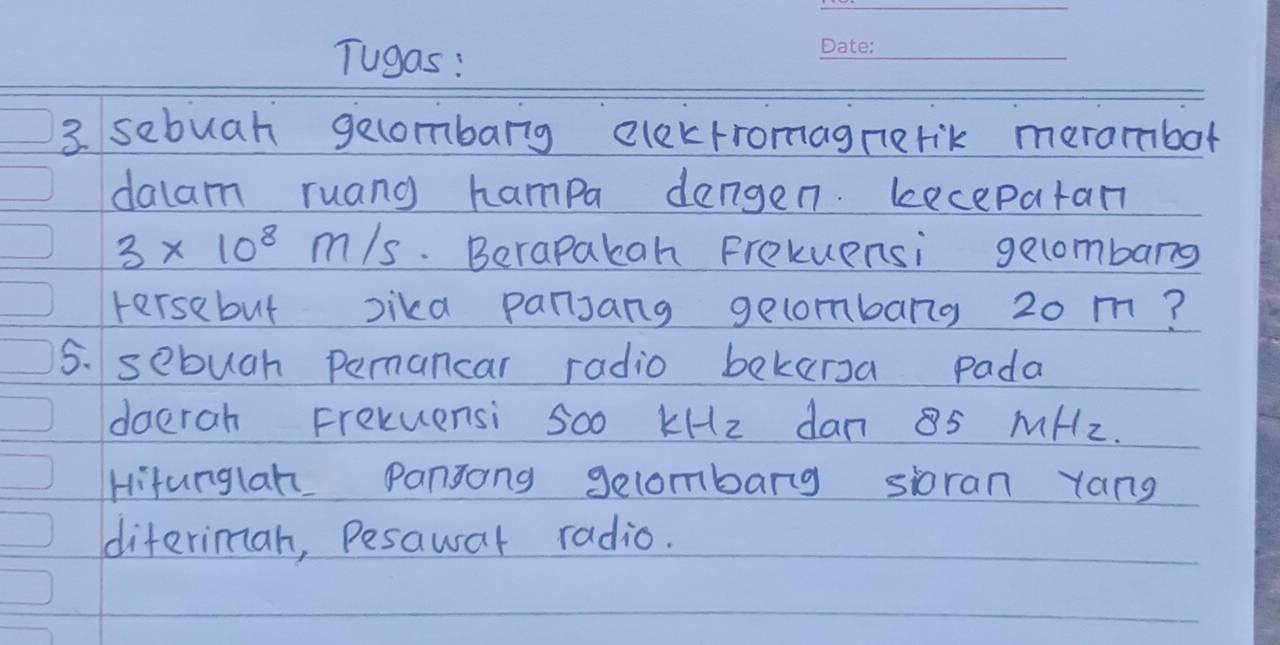 Date:
Tugas:
3. sebuah gelombang elektromagnetik merambat
dalam ruang hampa dengen. kecepatan
3 x 10⁸ m/s. Berapakah Frekuensi gelombang
tersebut jika panjang gelombang 20 m?
5. sebuah Pemancar radio bekerja pada
daerah Frekuensi 500 kHz dan 85 MHz.
Hitunglah panjang gelombang siaran yang
diterimah, Pesawat radio.